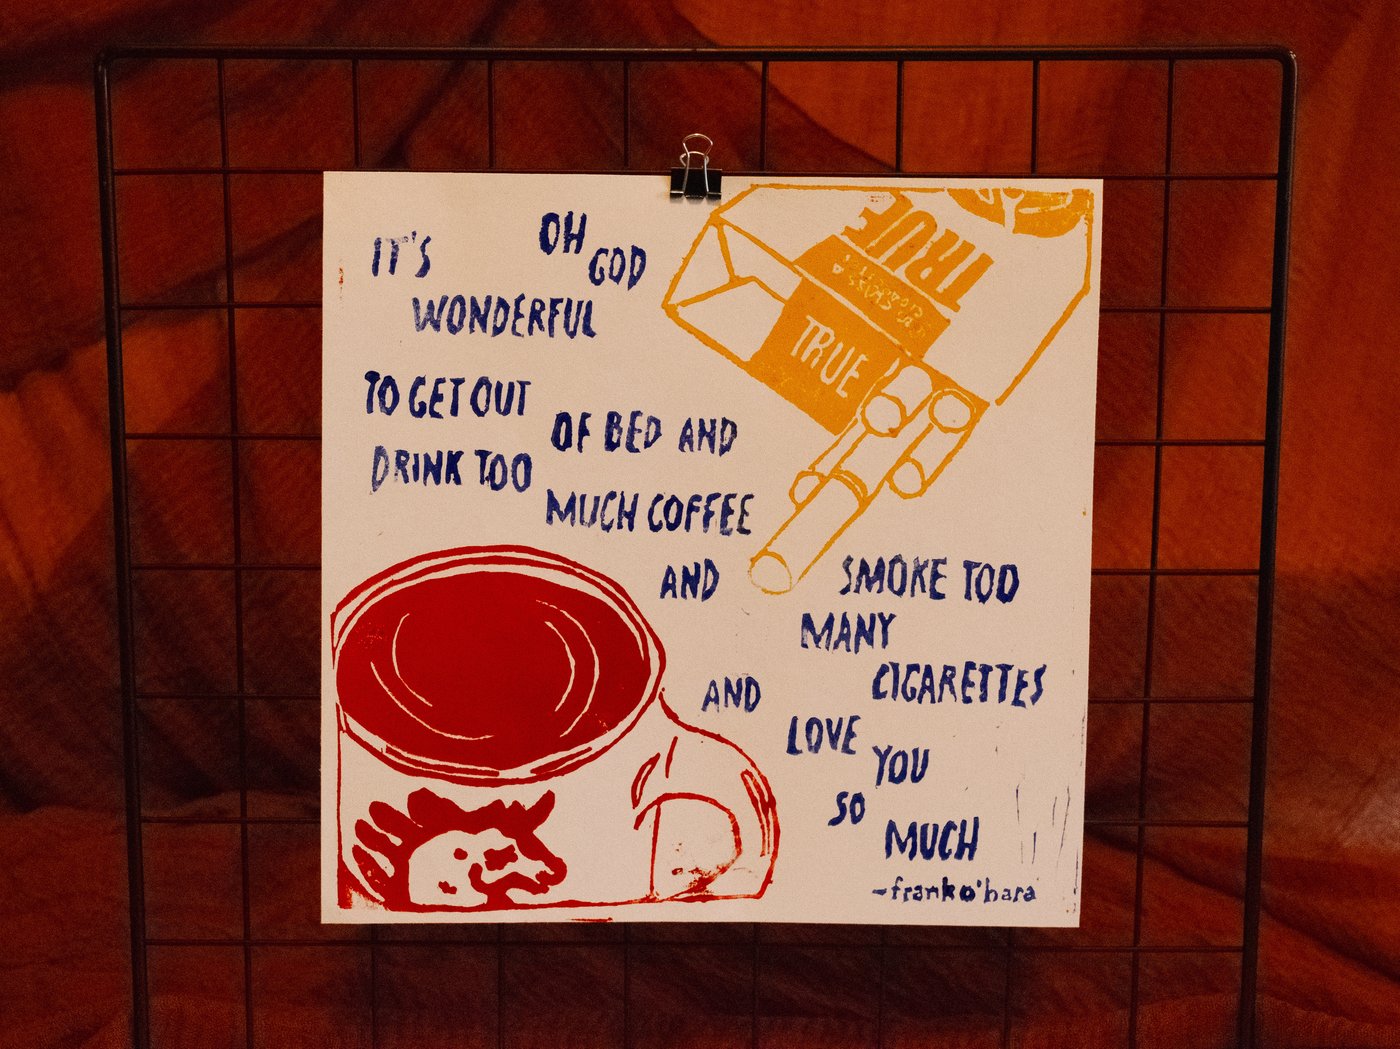 OH
IT'S
GOD
WONDERFUL
TO GET OUT
OF BED AND
DRINK TOO
MUCH COFFEE
AND
SMOKE TOO
MANY
CIGARETTES
AND
LOVE
YOU
SO
MUCH
-frank o'hara
TRUE
TRUE